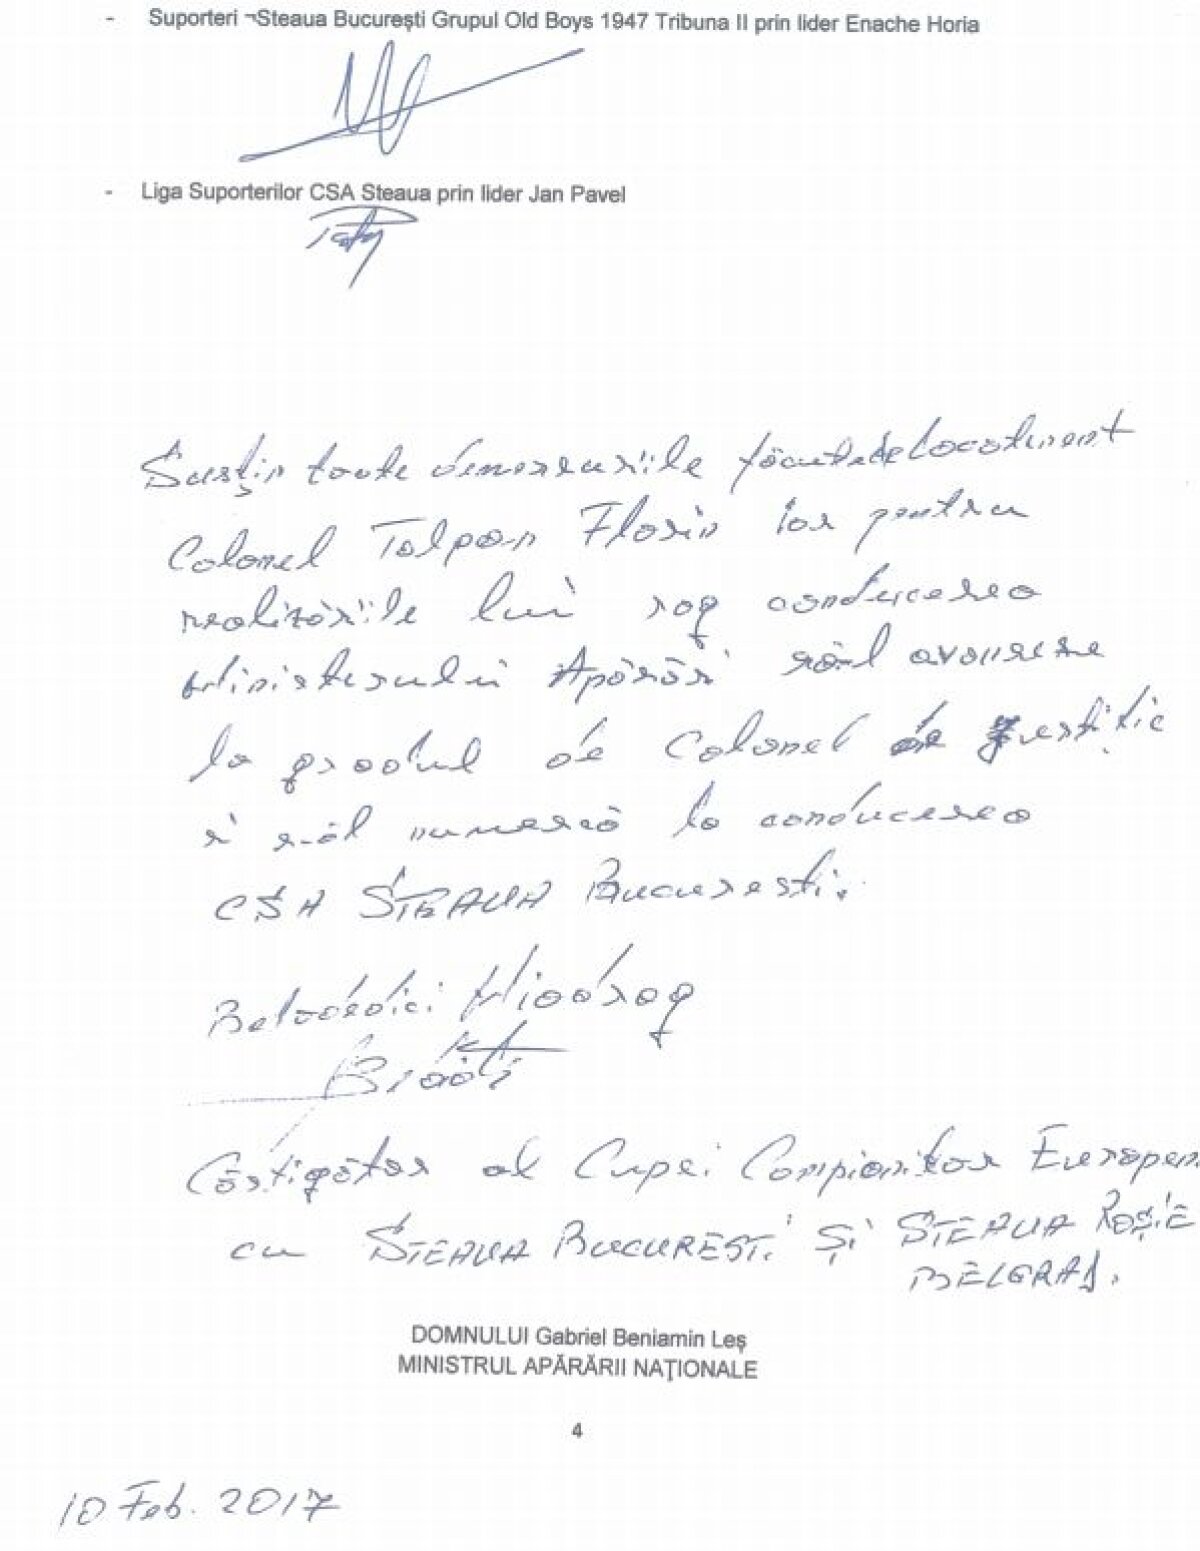 - Suporteri ¬Steaua București Grupul Old Boys 1947 Tribuna II prin lider Enache Horia
- Liga Suporterilor CSA Steaua prin lider Jan Pavel
Susțin toate demersurile făcute de Locotenent
Colonel Talpan Florin iar pentru
realizările lui rog conducerea
Ministerului Apărări să-l avanseze
la gradul de Colonel de Justiție
și s-ăl numească la conducerea
CSA STEAUA Bucuresti.
Belodedici Miodrag
Câstigător al Cupei Campionilor Europeni
cu STEAUA BUCURESTI ȘI STEAUA ROȘIE
BELGRAD.
DOMNULUI Gabriel Beniamin Leș
MINISTRUL APĂRĂRII NAȚIONALE
4
10 Feb. 2017